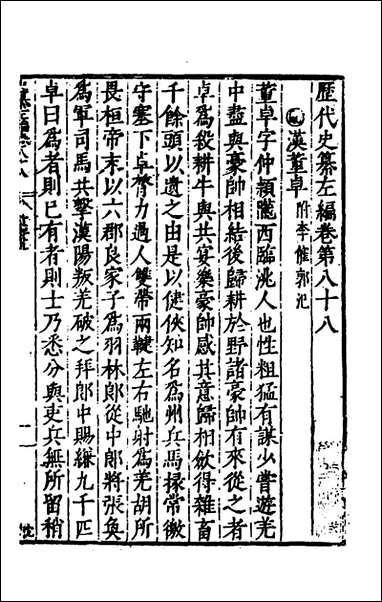 歷代史纂左編卷第八十八
漢董卓 附李傕郭汜
董卓字仲穎隴西臨洮人也性粗猛有謀少嘗遊羌
中盡與豪帥相結後歸耕於野諸豪帥有來從之者
卓爲殺耕牛與共宴樂豪帥感其意歸相歛得雜畜
千餘頭以遺之由是以健俠知名爲州兵馬掾常徼
守塞下卓膂力過人雙帶兩鞬左右馳射爲羌胡所
畏桓帝末以六郡良家子爲羽林郎從中郎將張奐
爲軍司馬共擊漢陽叛羌破之拜郎中賜縑九千匹
卓曰爲者則已有者則士乃悉分與吏兵無所留稍